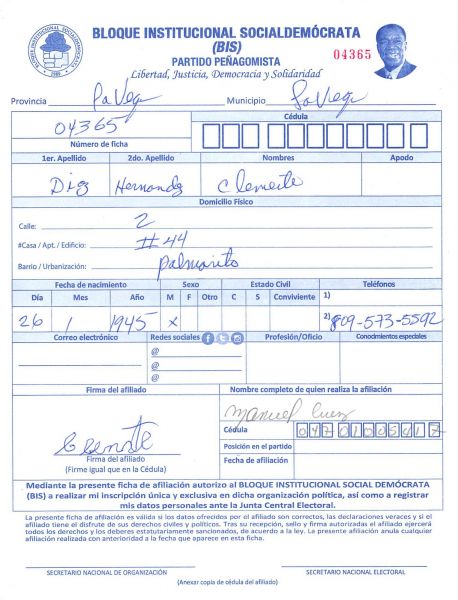 BLOQUE INSTITUCIONAL SOCIALDEMÓCRATA
(BIS)
PARTIDO PEÑAGOMISTA
04365
Libertad, Justicia, Democracia y Solidaridad
Provincia La Vega Municipio La Vega
04365
Número de ficha
Cédula
1er. Apellido 2do. Apellido Nombres Apodo
Diaz Hernandez Clemente
Domicilio Físico
Calle: 2
#Casa / Apt. / Edificio: #44
Barrio / Urbanización: Palmarito
Fecha de nacimiento Sexo Estado Civil Teléfonos
Día Mes Año M F Otro C S Conviviente 1)
26 1 1945 x 2) 809-573-5592
Correo electrónico Redes sociales Profesión/Oficio Conocimientos especiales
@
@
@
Firma del afiliado Nombre completo de quien realiza la afiliación
Manuel Cruz
Cédula 047010054
Posición en el partido
Fecha de afiliación
Firma del afiliado
(Firme igual que en la Cédula)
Mediante la presente ficha de afiliación autorizo al BLOQUE INSTITUCIONAL SOCIAL DEMÓCRATA
(BIS) a realizar mi inscripción única y exclusiva en dicha organización política, así como a registrar
mis datos personales ante la Junta Central Electoral.
La presente ficha de afiliación es válida si los datos ofrecidos por el afiliado son correctos, las declaraciones veraces y si el
afiliado tiene el disfrute de sus derechos civiles y políticos. Tras su recepción, sello y firma autorizadas el afiliado ejercerá
todos los derechos y los deberes estatutariamente sancionados, de acuerdo a la ley. La presente afiliación anula cualquier
afiliación realizada con anterioridad a la fecha que aparece en esta ficha.
SECRETARIO NACIONAL DE ORGANIZACIÓN SECRETARIO NACIONAL ELECTORAL
(Anexar copia de cédula del afiliado)